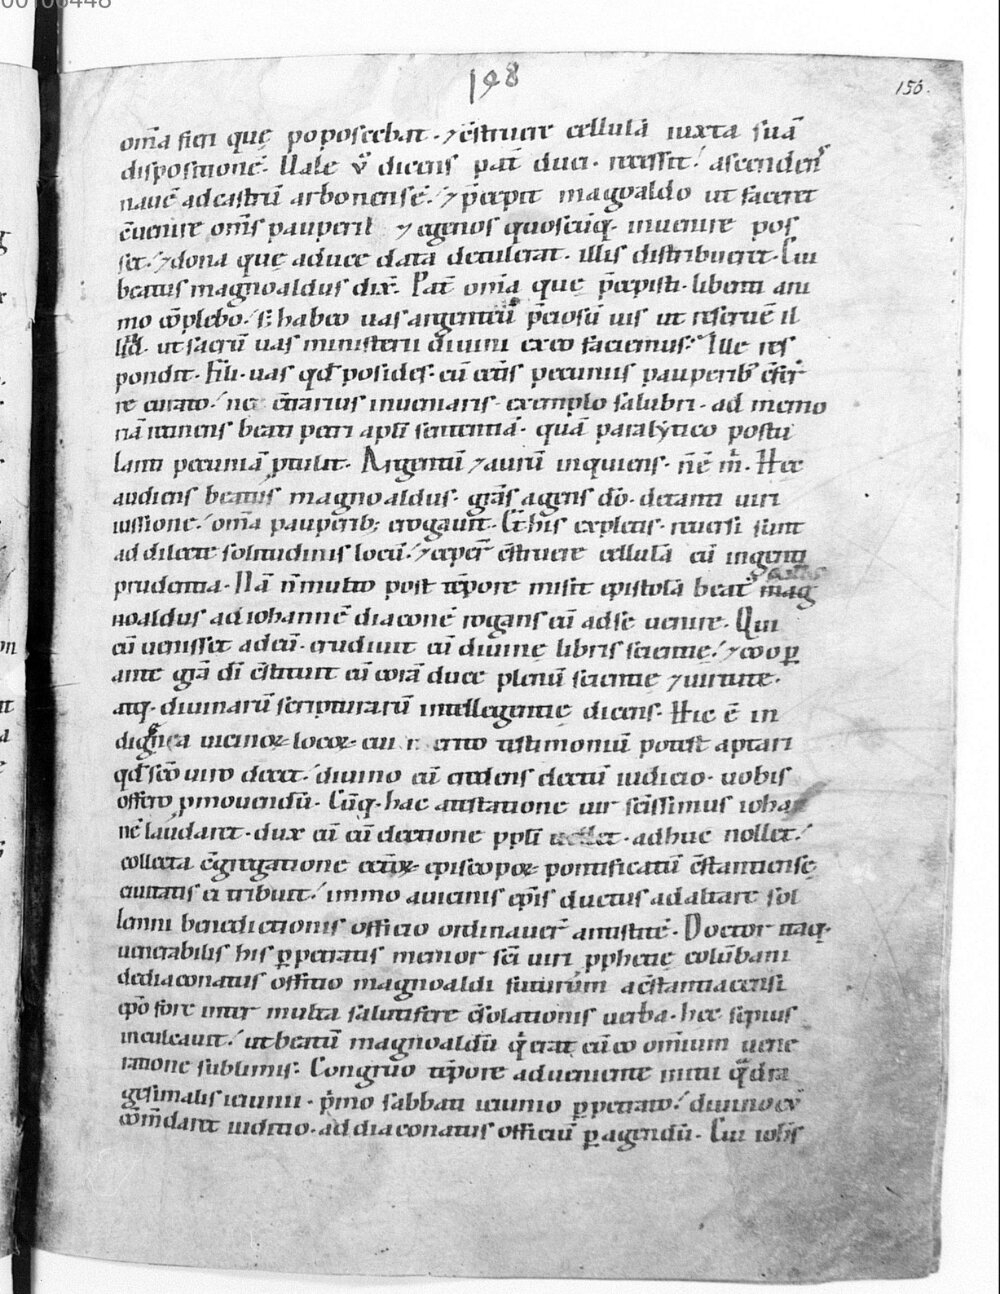 00106448
198
156.
om̄a fieri quę poposcebat · ⁊ c̄struere cellulā iuxta suā
dispositionē. Uale v̄ dicens pat̄ duci · recessit! ascendens
nauē ad castrū arbonensē! ⁊ p̄cepit magoaldo ut faceret
c̄uenire om̄s pauperes ⁊ egenos quoscūq· inuenire pos
set! ⁊ dona quę a duce data detulerat · illis distribueret · Cui
beatus magnoaldus dix̄. Pat̄ om̄ia que p̄cepisti · libenti ani
mo c̄plebo. s; habeo uas argenteū p̄ciosū uis ut reseruē il
lud · ut sacrū uas ministerii diuini ex eo faciemus? Ille res
pondit. Fili · uas qd̄ possides · cū cet̄is pecuniis pauperib; c̄fer
re curato! ne c̄trarius inueniaris · exemplo salubri · ad memo
riā retinens beati petri apl̄i sententiā · quā paralytico postu
lanti pecuniā ptulit · Argentū ⁊ aurū inquiens · n̄ ē m̄. Hec
audiens beatus magnoaldus · gr̄as agens dō · de tanti uiri
iussione! om̄a pauperib; erogauit · Et his expletis · reuersi sunt
ad dilectę solitudinis locū! ⁊ ceper̄ c̄struere cellulā cū ingenti
prudentia · Nā n̄ multo post tēpore misit epistolā beat' mag
gallus
noaldus ad iohannē diaconē rogans eū ad se uenire · Qui
cū uenisset ad eū · erudiuit eū diuinę libris scientię! ⁊ coop
ante gr̄a dī c̄stituit eū corā duce plenū scientię ⁊ uirtute ·
atq· diuinarū scripturarū intellegentię dicens · Hic ē in
digena uicinoꝝ locoꝝ cui recto testimoniū potest aptari
qd̄ sc̄o uiro decet! diuino eū credens dectū iudicio · uobis
offero pmouendū · Cūq· hac attestatione uir sc̄issimus ioha
nē laudaret · dux eū cū electione ppl̄i uellet · adhuc nollet!
collecta c̄gregatione cet̄oꝝ episcopoꝝ pontificatū c̄stantiensę
ciuitatis ei tribuit! immo a uicinis ep̄is ductus ad altare sol
lenni benedictionis officio ordinauer̄ antistitē · Doctor itaq·
uenerabilis his ꝑpetratis memor sc̄i uiri pphetię colūbani
de diaconatus offitio magnoaldi futurūm a c̄stantiacensi
ep̄o fore inter multa salutiferę c̄solationis uerba · hec sepius
inculcauit! ut beatū magnoaldū q̄ erat cū eo om̄ium uene
ratione sublimis · Congruo tēpore adueniente initii q̄dra
gesimalis ieiunii · p̄mo sabbati ieiunio ꝑpetrato! diuino eū
c̄m̄daret iuditio · ad diaconatus officiū ꝑagendū · Cui ioh̄s